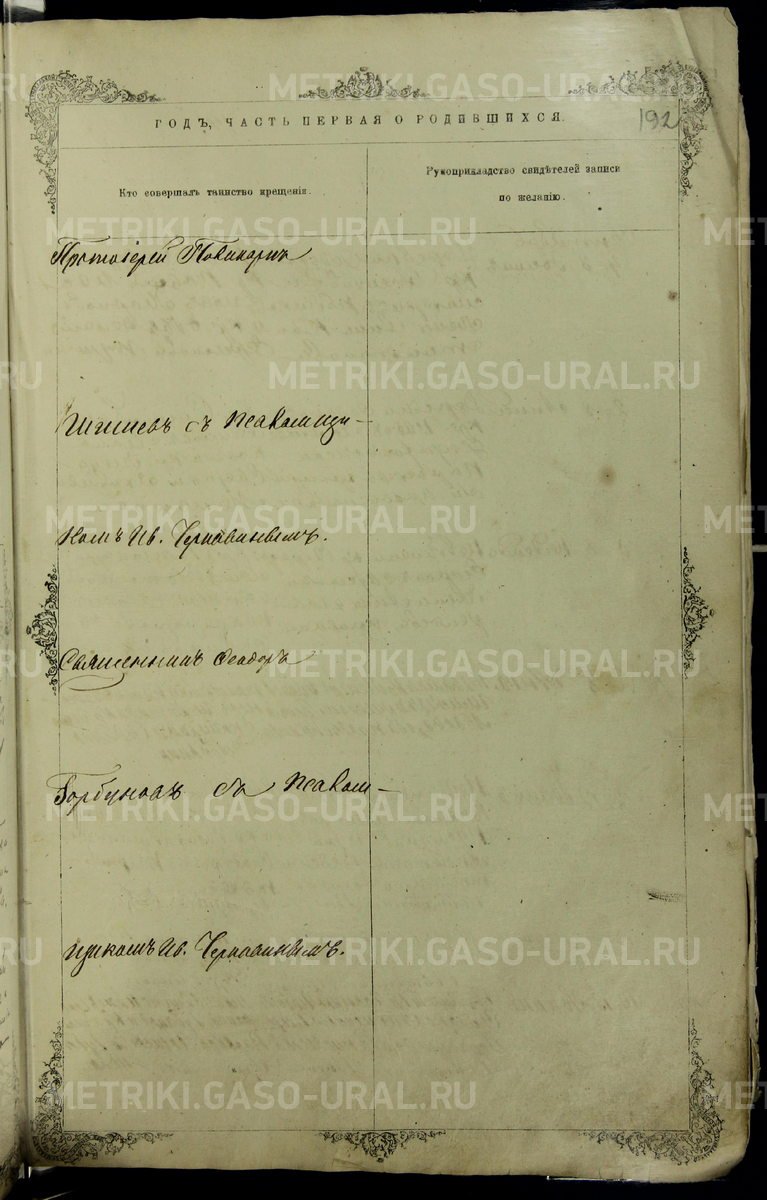 ГОДЪ, ЧАСТЬ ПЕРВАЯ О РОДИВШИХСЯ.
192
Кто совершалъ таинство крещенія.
Рукоприкладство свидѣтелей записи
по желанію.
Протоіерей Поликарпъ
съ Псаломщи-
комъ Ив. Чернавинымъ.
Священникъ Феодоръ
Горбуновъ съ Псалом-
щикомъ Ив. Чернавинымъ.
METRIKI.GASO-URAL.RU